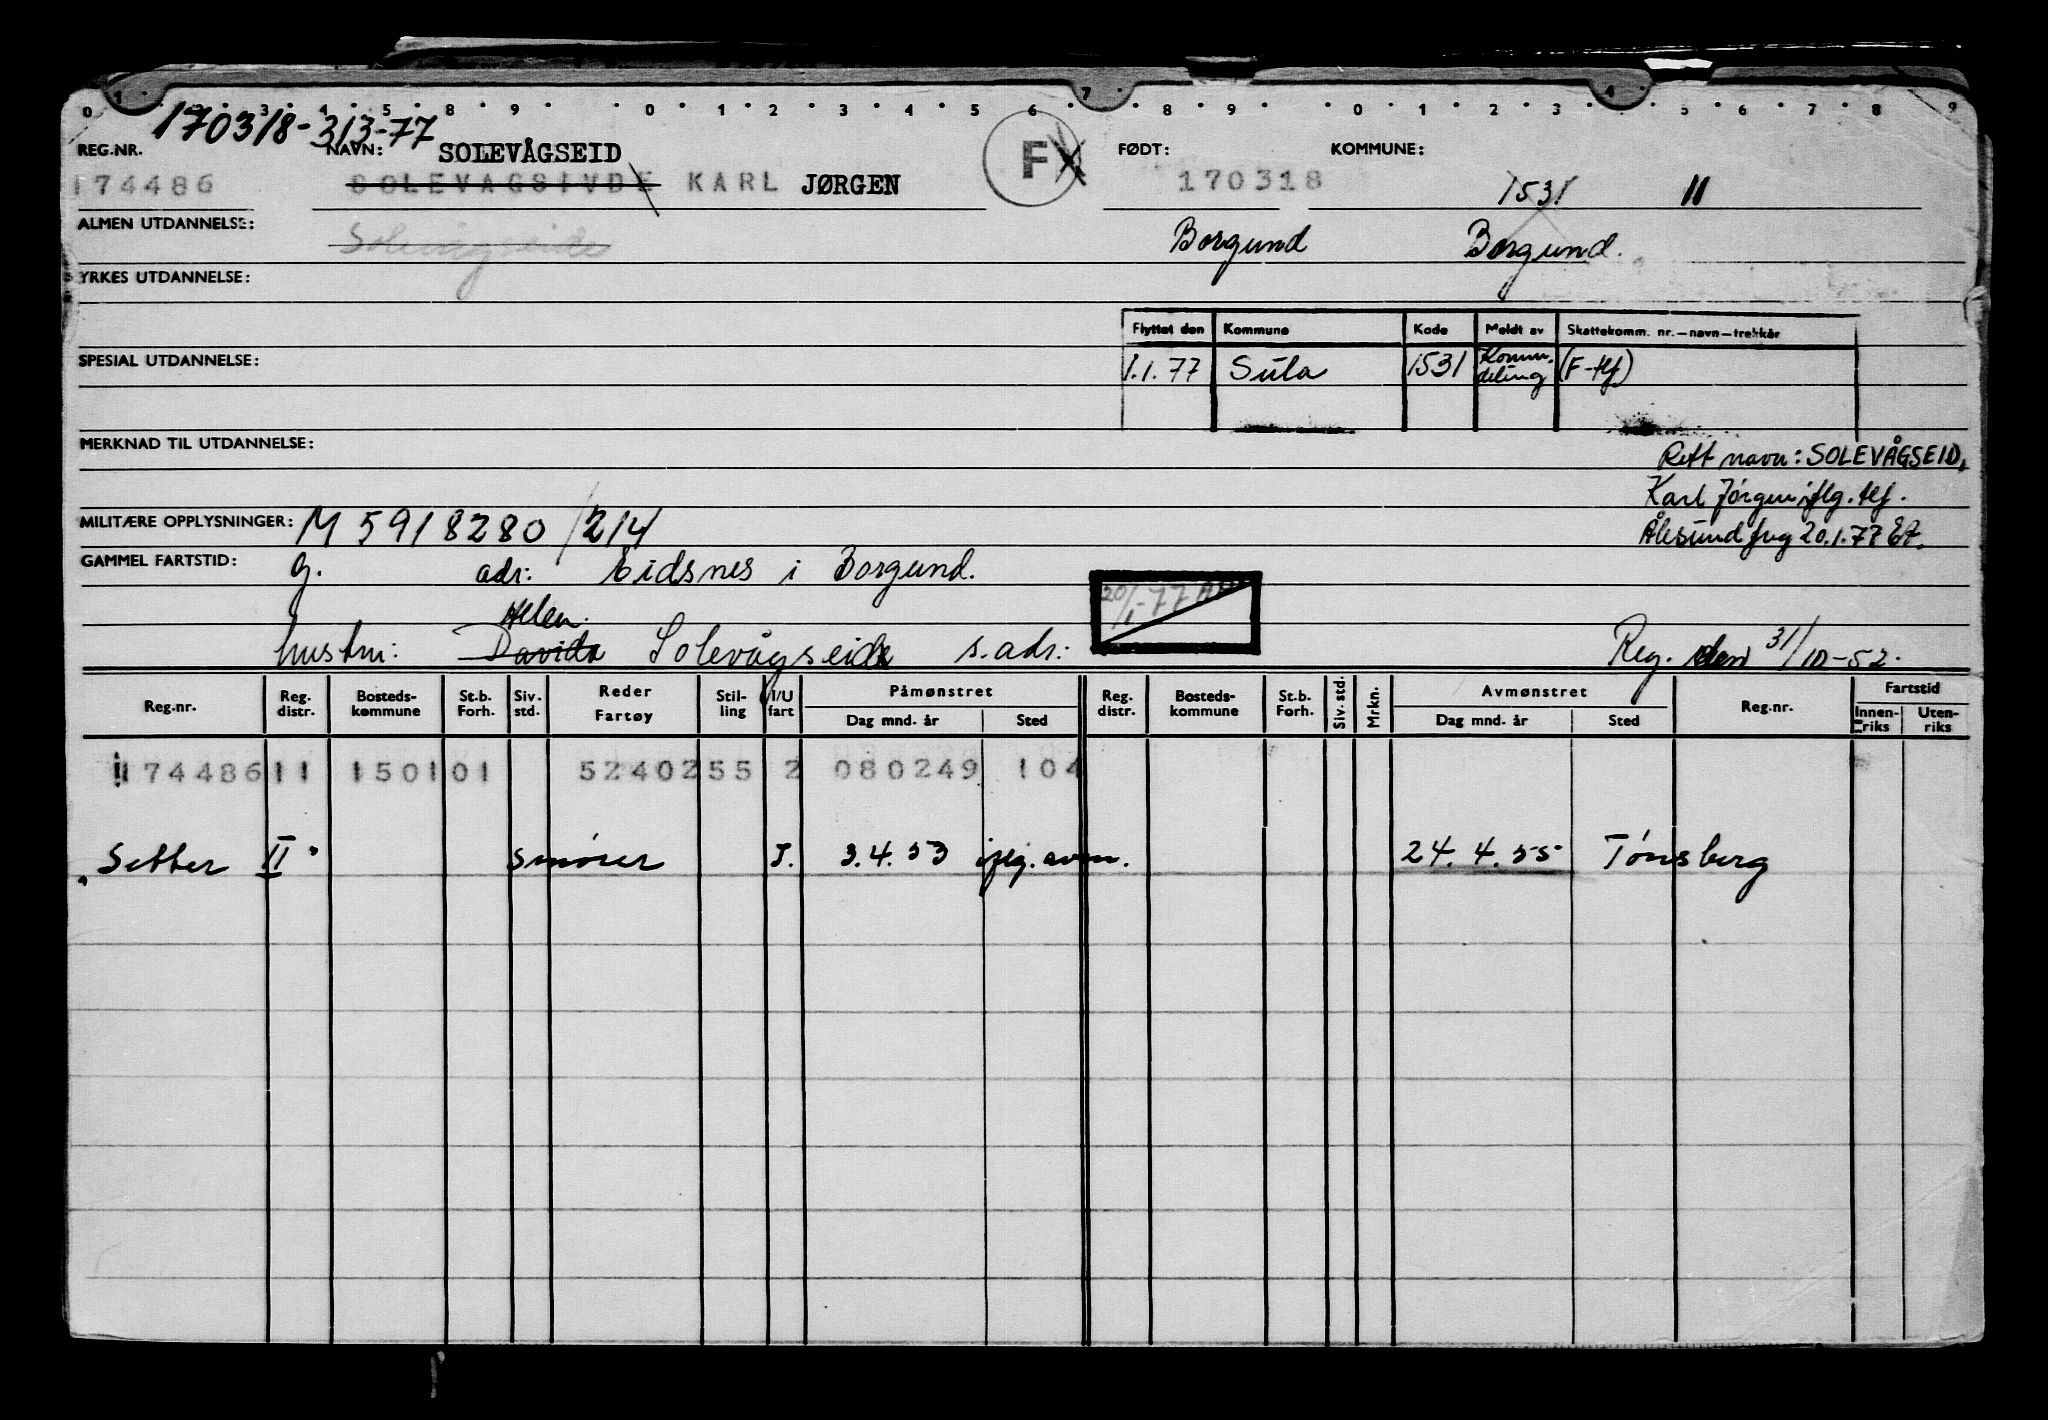 0 1 3 4 5 8 9 0 1 2 3 4 5 6 7 8 9 0 1 2 3 4 5 6 7 8 9
170318-313-77
REG.NR. NAVN: SOLEVÅGSEID F FØDT: KOMMUNE:
174486 SOLEVAGSIVDE KARL JØRGEN 170318 1531 11
ALMEN UTDANNELSE: Solevågseide Borgund Borgund.
YRKES UTDANNELSE:
Flyttet den Kommune Kode Meldt av Skattekomm. nr.—navn—trekkår
SPESIAL UTDANNELSE: 1.1.77 Sula 1531 Komm.deling (F-tlf)
MERKNAD TIL UTDANNELSE:
Rett navn: SOLEVÅGSEID,
Karl Jørgen iflg. tlf.
MILITÆRE OPPLYSNINGER: M 5918280/214
Ålesund fug 20.1.77
GAMMEL FARTSTID: g. adr: Eidsnes i Borgund.
20/1-77
Helen.
hustru: Davida Solevågseide s.adr: Reg. den 31/10-52.
Reg.nr. Reg. distr. Bosteds-kommune St.b. Forh. Siv. std. Reder Fartøy Stil-ling I/U fart Påmønstret Dag mnd. år Sted Reg. distr. Bosteds-kommune St.b. Forh. Siv. std. Mrkn. Avmønstret Dag mnd. år Sted Reg.nr. Fartstid Innen-riks Uten-riks
174486 11 1501 01 5240255 2 080249 104
Setter II Smører I. 3.4.53 iflg. avm. 24.4.55 Tønsberg